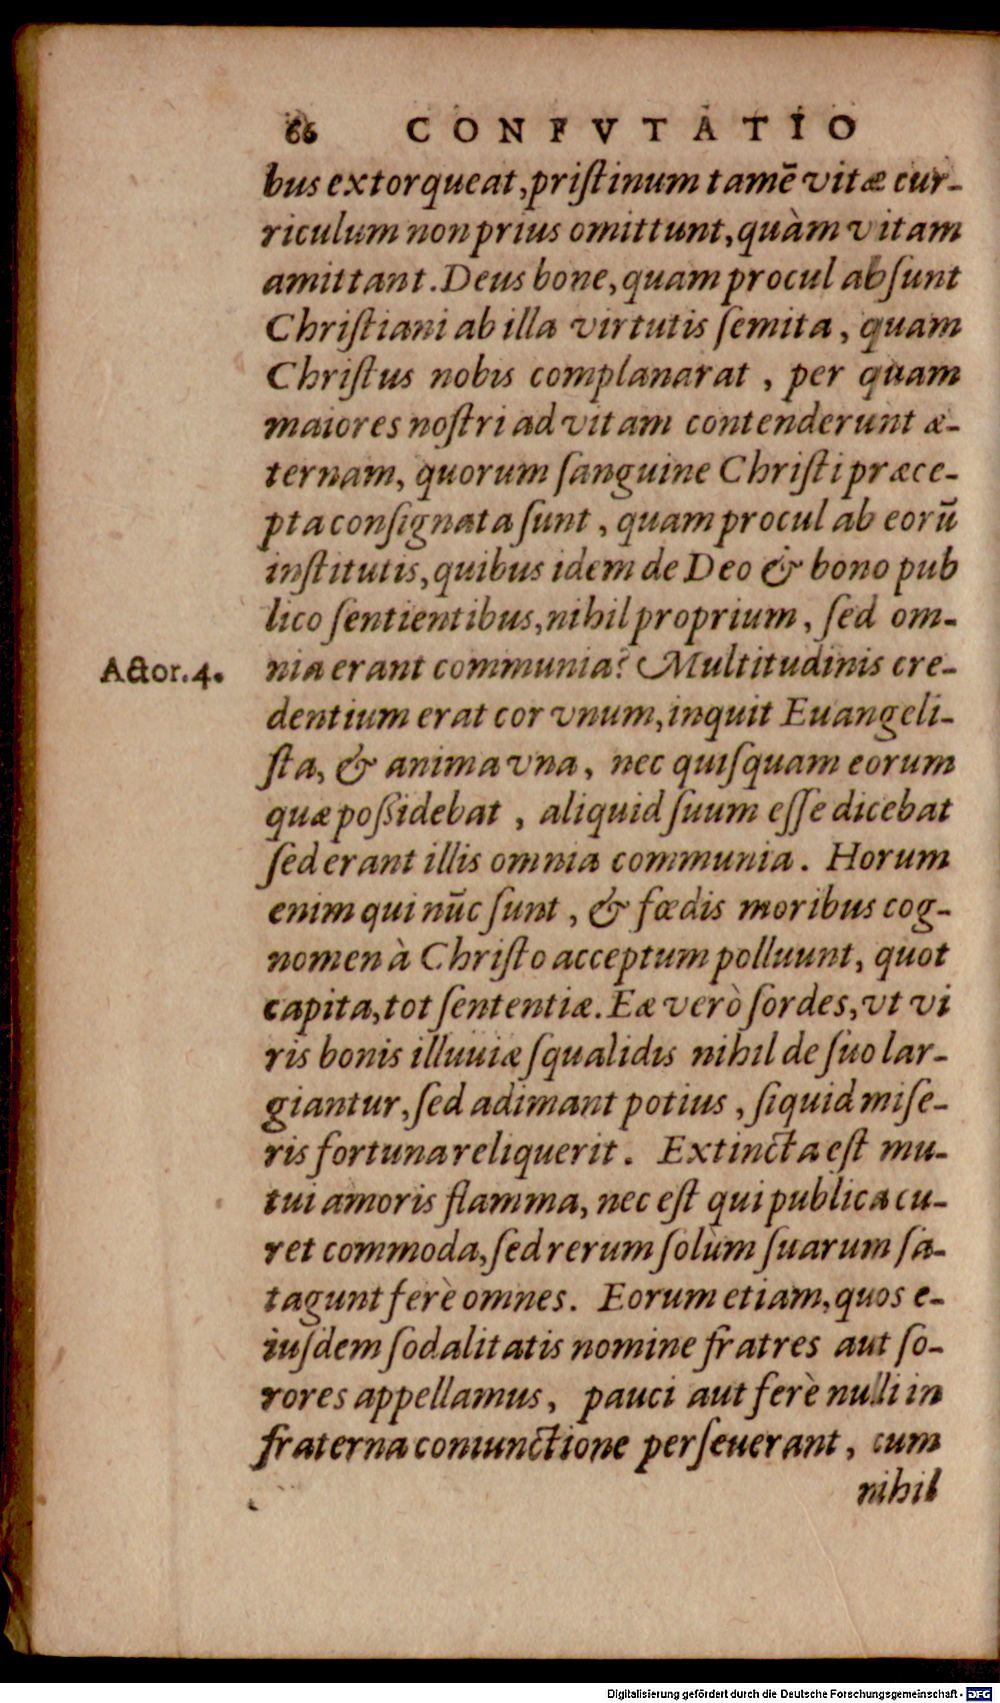 66 CONFVTATIO
bus extorqueat, priſtinum tamē vitæ cur-
riculum non prius omittunt, quàm vitam
amittant. Deus bone, quam procul abſunt
Chriſtiani ab illa virtutis ſemita, quam
Chriſtus nobis complanarat, per quam
maiores noſtri ad vitam contenderunt æ-
ternam, quorum ſanguine Chriſti præce-
pta conſignata ſunt, quam procul ab eorū
inſtitutis, quibus idem de Deo & bono pub
lico ſentientibus, nihil proprium, ſed om-
Actor. 4.
nia erant communia? Multitudinis cre-
dentium erat cor vnum, inquit Euangeli-
ſta, & anima vna, nec quiſquam eorum
quæ poßidebat, aliquid ſuum eſſe dicebat
ſed erant illis omnia communia. Horum
enim qui nūc ſunt, & fœdis moribus cog-
nomen à Chriſto acceptum polluunt, quot
capita, tot ſententiæ. Eæ verò ſordes, vt vi
ris bonis illuuiæ ſqualidis nihil de ſuo lar-
giantur, ſed adimant potius, ſiquid miſe-
ris fortuna reliquerit. Extincta eſt mu-
tui amoris flamma, nec eſt qui publica cu-
ret commoda, ſed rerum ſolùm ſuarum ſa-
tagunt ferè omnes. Eorum etiam, quos e-
iuſdem ſodalitatis nomine fratres aut ſo-
rores appellamus, pauci aut ferè nulli in
fraterna coniunctione perſeuerant, cum
nihil
Digitalisierung gefördert durch die Deutsche Forschungsgemeinschaft - DFG